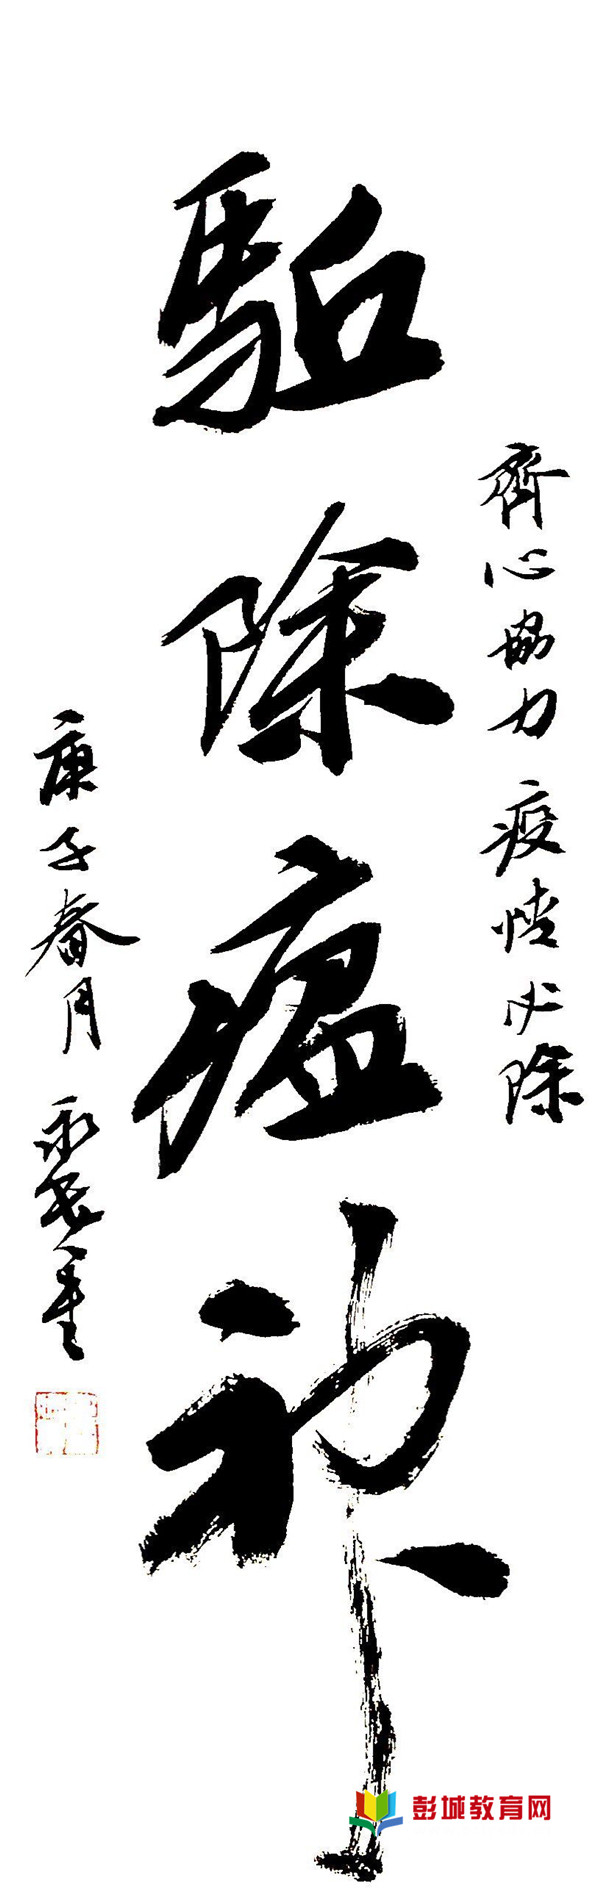 齊心協力 疫情必除
駈除瘟神
庚子春月
彭城教育网